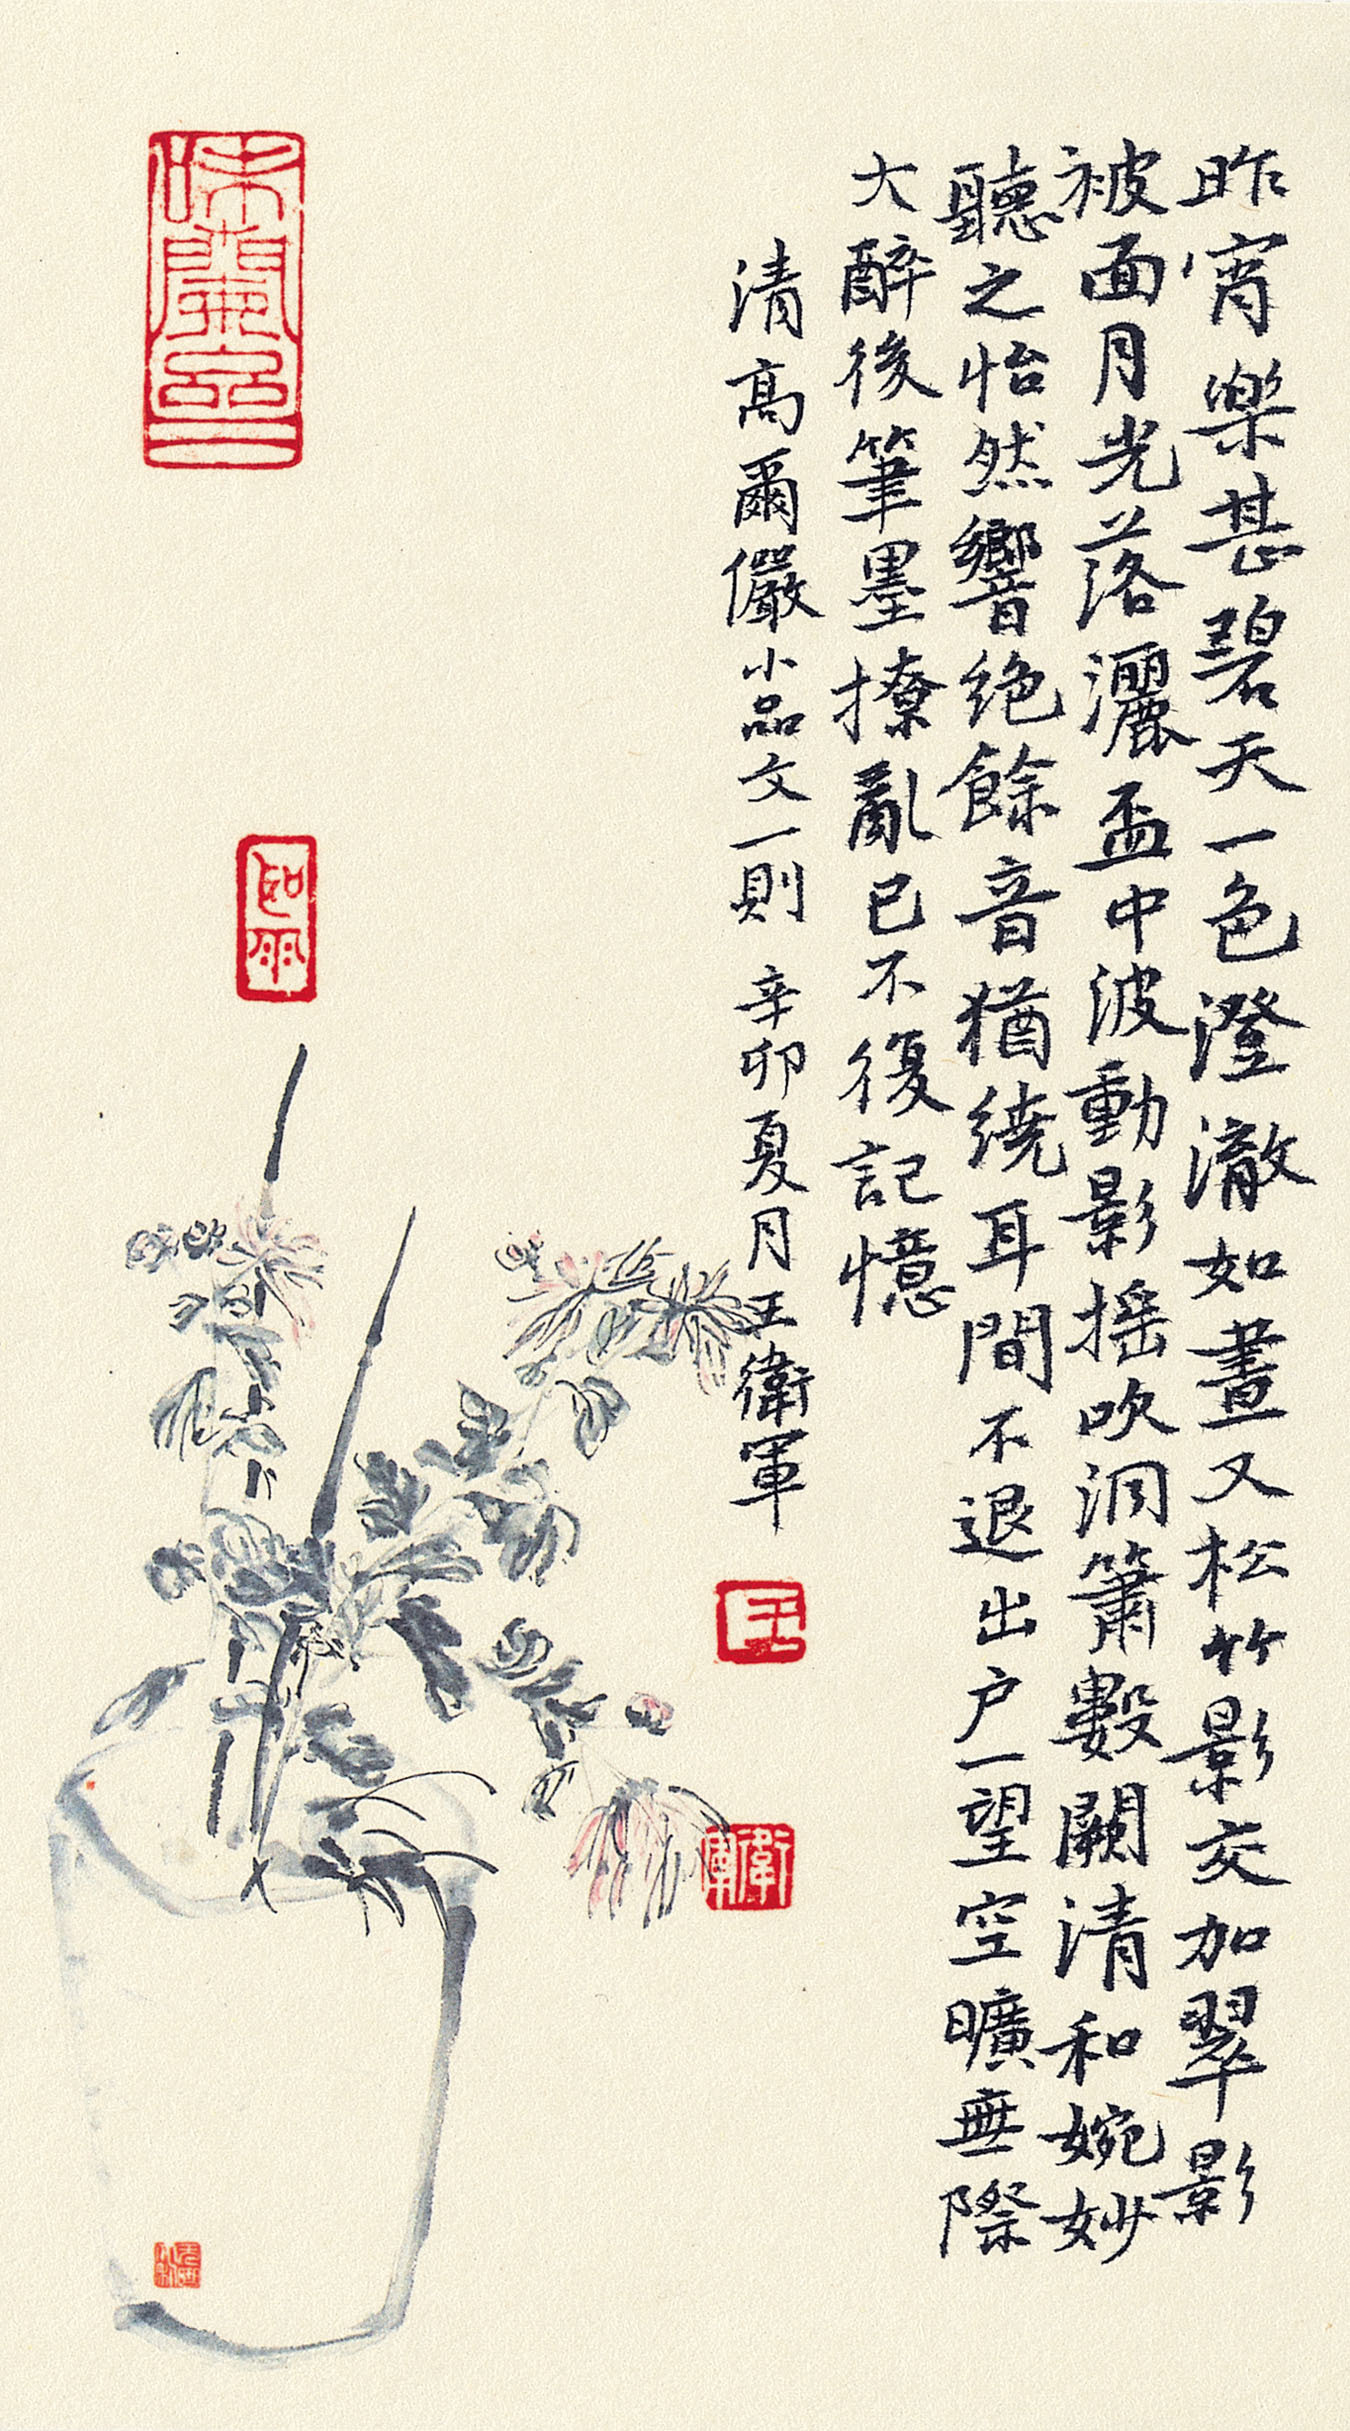 昨宵樂甚碧天一色澄澈如晝又松竹影交加翠影
被面月光落灑盃中波動影摇吹洞簫數闋清和婉妙
聽之怡然響绝餘音猶繞耳間不退出户一望空曠無際
大醉後筆墨撩亂已不復記憶
清高爾儼小品文一則 辛卯夏月王衛軍
王
衛軍